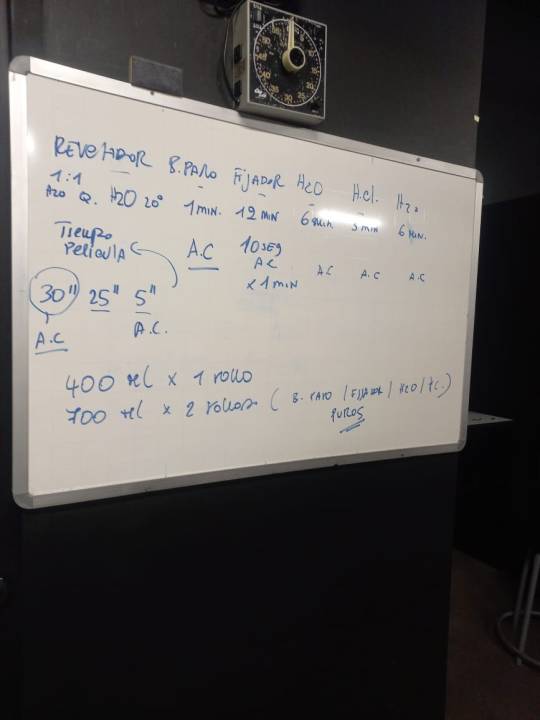 REVELADOR B.PARO FIJADOR H2O H.Cl. H2O
1:1
H2O Q. H2O 20° 1 MIN. 12 MIN 6 MIN 3 MIN 6 MIN.
Tiempo
Película
A.C 10 SEG
AC AC A.C A.C
x 1 MIN
30" 25" 5"
A.C. A.C.
400 ml x 1 rollo
700 ml x 2 rollos ( B. PARO / FIJADOR / H2O /
PUROS